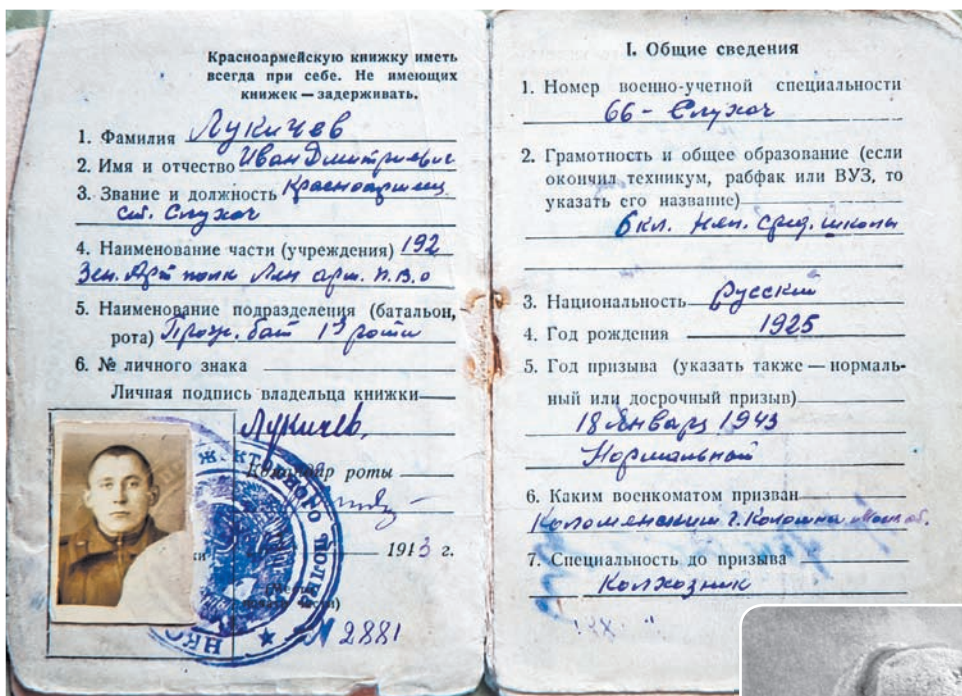 Красноармейскую книжку иметь
всегда при себе. Не имеющих
книжек — задерживать.
1. Фамилия Лукичев
2. Имя и отчество Иван Дмитриевич
3. Звание и должность Красноармеец
ст. Слухач
4. Наименование части (учреждения) 192
Зен. Арт полк Лен арм. П.В.О
5. Наименование подразделения (батальон,
рота) Прож. бат 13 роты
6. № личного знака
Личная подпись владельца книжки
Лукичев.
Командир роты
1943 г.
N 2881
I. Общие сведения
1. Номер военно-учетной специальности
66 - Слухач
2. Грамотность и общее образование (если
окончил техникум, рабфак или ВУЗ, то
указать его название)
6 кл. Неп. сред. школы
3. Национальность русский
4. Год рождения 1925
5. Год призыва (указать также — нормаль-
ный или досрочный призыв)
18 Январь 1943
Нормальный
6. Каким военкоматом призван
Коломенским г. Коломна Моск об.
7. Специальность до призыва
Колхозник